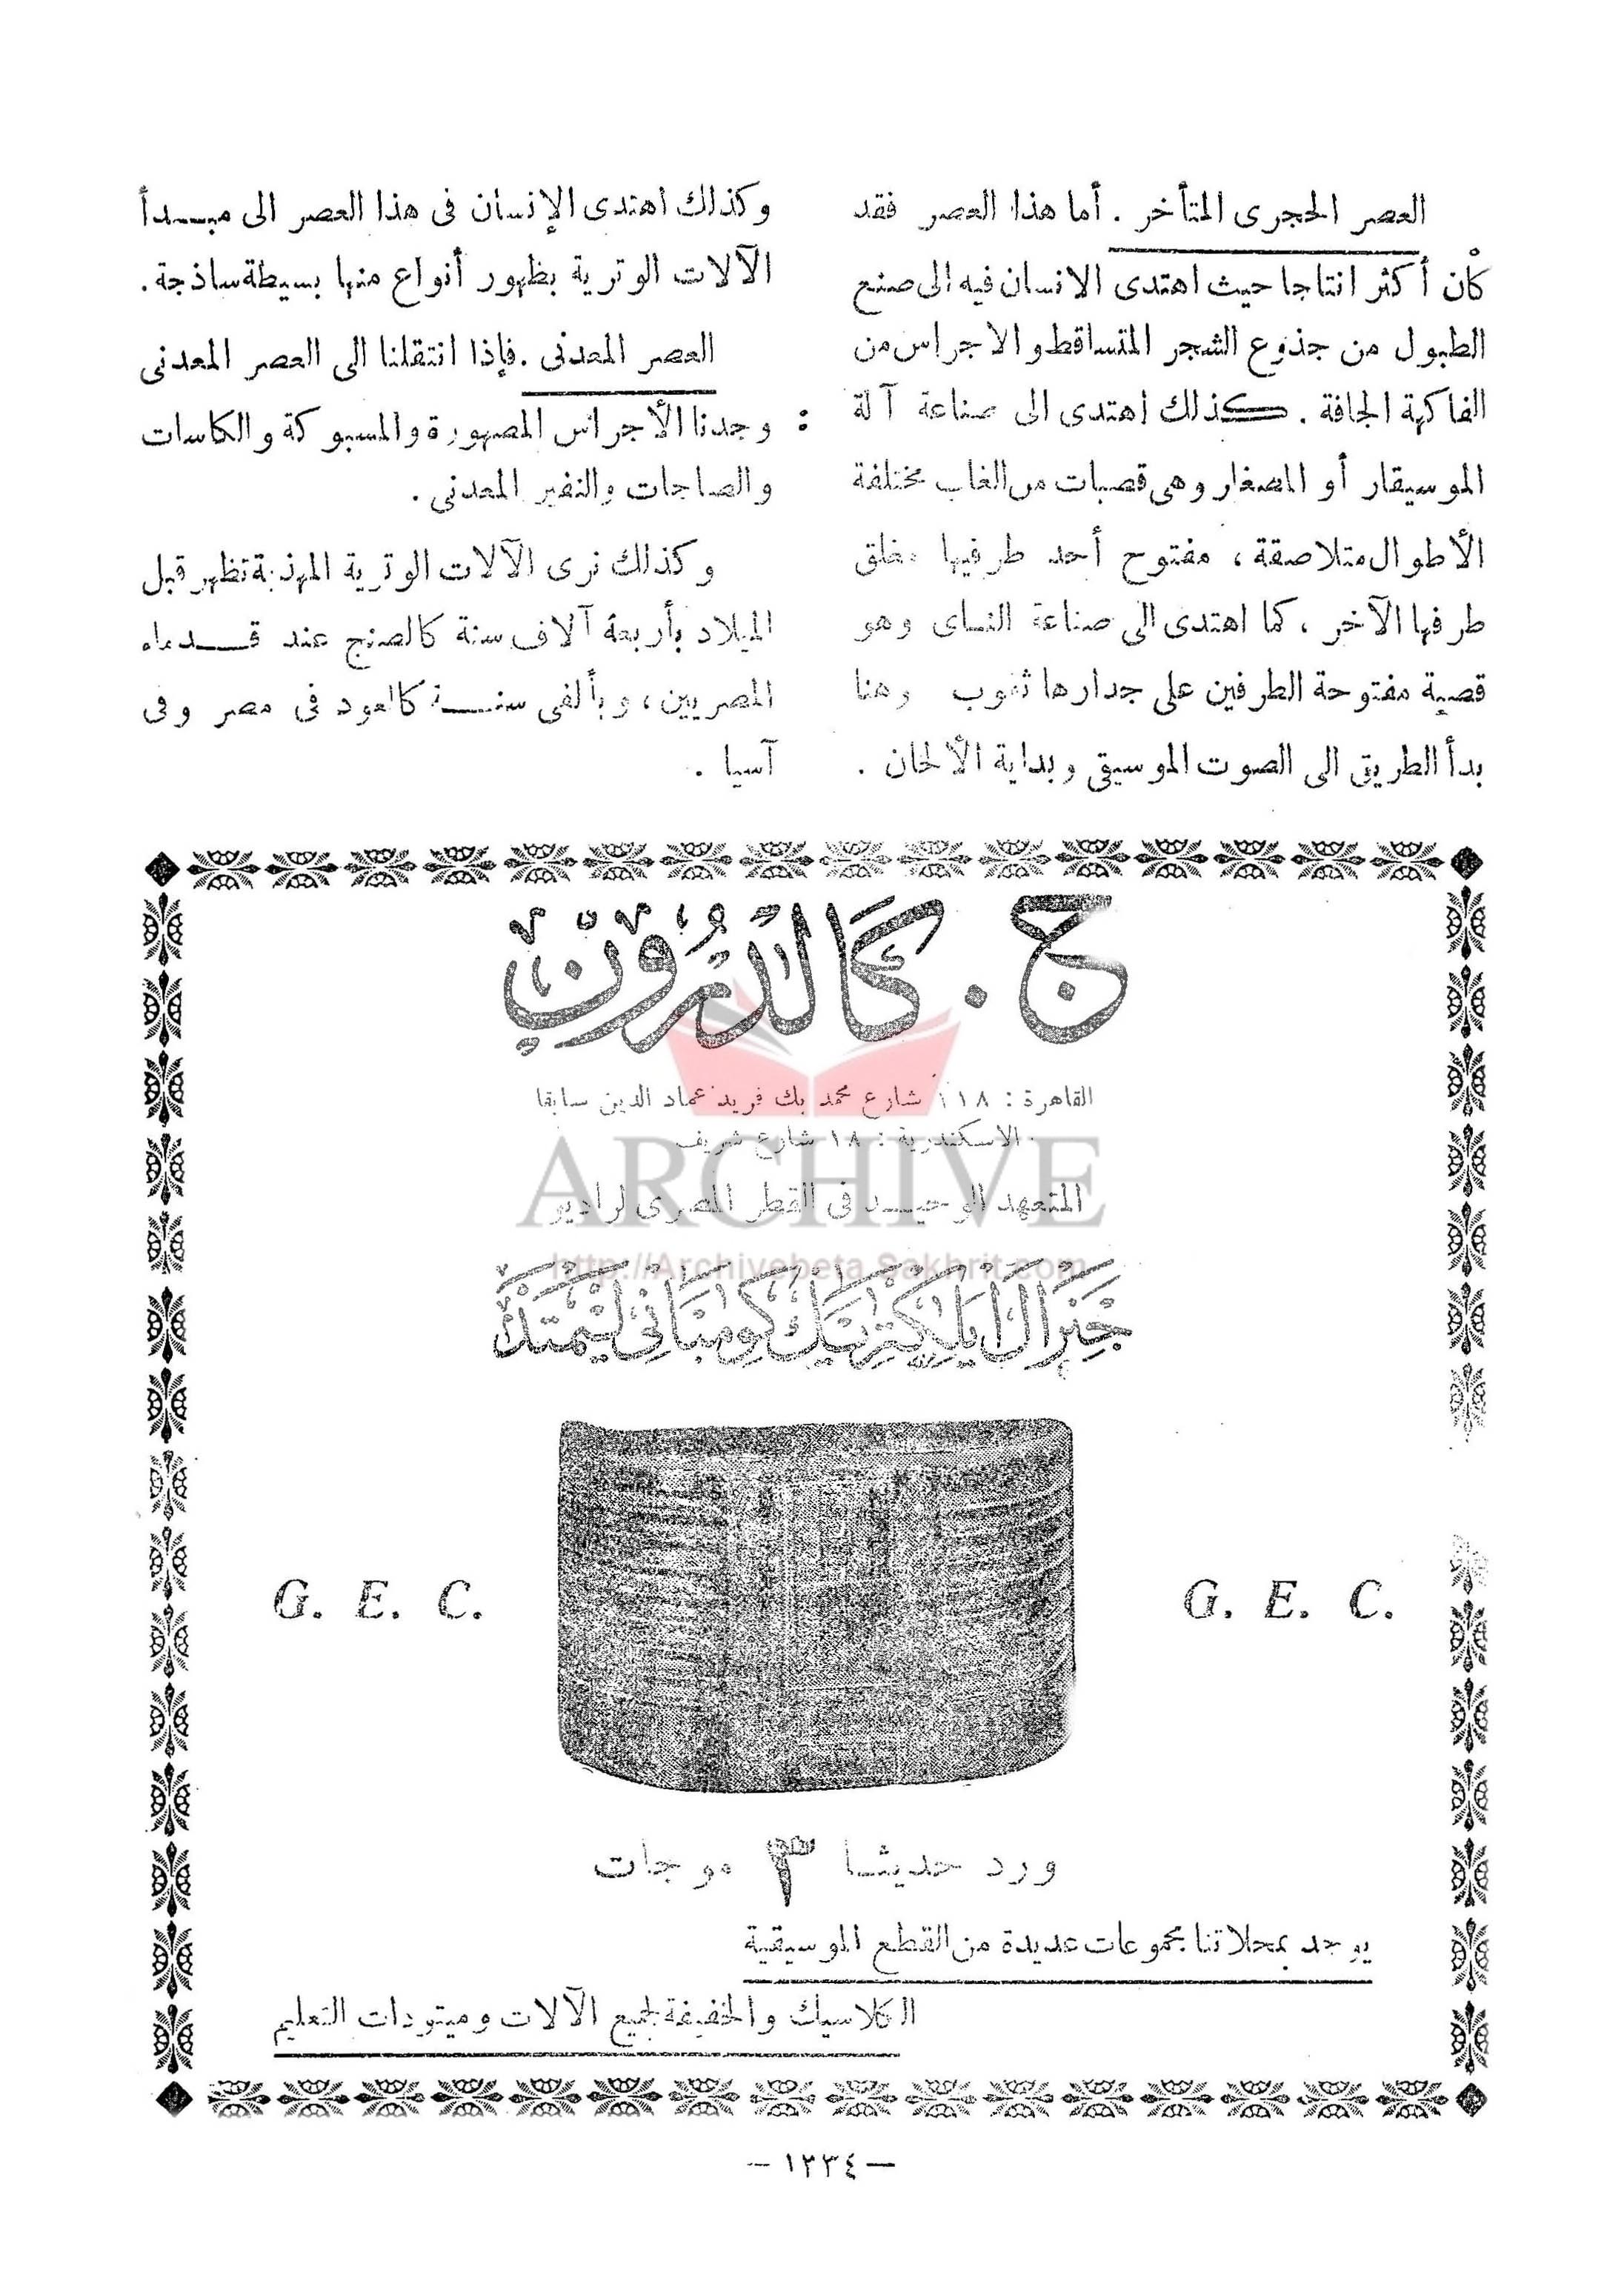 العصر الحجرى المتأخر . أما هذا العصر فقد
كان أكثر انتاجا حيث اهتدى الانسان فيه الى صنع
الطبول من جذوع الشجر المتساقط والاجراس من
الفاكهة الجافة . كذلك اهتدى الى صناعة آلة
الموسيقار أو المصفار وهى قصبات من الغاب مختلفة
الأطوال متلاصقة ، مفتوح أحد طرفيها مغلق
طرفها الآخر ، كما اهتدى الى صناعة الناى وهو
قصبة مفتوحة الطرفين على جدارها ثقوب وهنا
بدأ الطريق الى الصوت الموسيقى وبداية الألحان .
وكذلك اهتدى الإنسان فى هذا العصر الى مبدأ
الآلات الوترية بظهور أنواع منها بسيطة ساذجة .
العصر المعدنى . فإذا انتقلنا الى العصر المعدنى
وجدنا الأجراس المصهورة والمسبوكة والكاسات
والصاجات والنفير المعدنى .
وكذلك نرى الآلات الوترية المهذبة تظهر قبل
الميلاد بأربعة آلاف سنة كالصنج عند قدماء
المصريين ، وبألفى سنة كالعود فى مصر وفى
آسيا .
ج . كالدرون
القاهرة : ١١٨ شارع محمد بك فريد عماد الدين سابقا
الاسكندرية : ١٨ شارع شريف
ARCHIVE
المتعهد الوحيد فى القطر المصرى لراديو
http://Archivebeta.Sakhrit.com
جنرال ايلكتريك كومبانى ليمتد
G. E. C.
G. E. C.
ورد حديثا ٣ موجات
يوجد بمحلاتنا مجموعات عديدة من القطع الموسيقية
الكلاسيك والخفيفة لجميع الآلات وميتودات التعليم
— ١٢٣٤ —